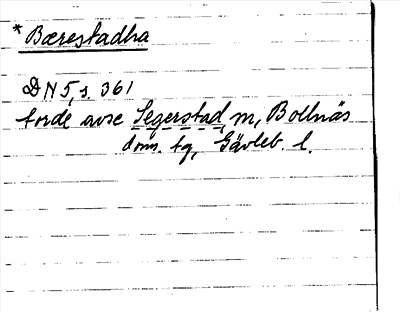 * Bærestadha
DN 5, s. 361
torde avse Segerstad, m, Bollnäs
doms. tg, Gävleb. l.